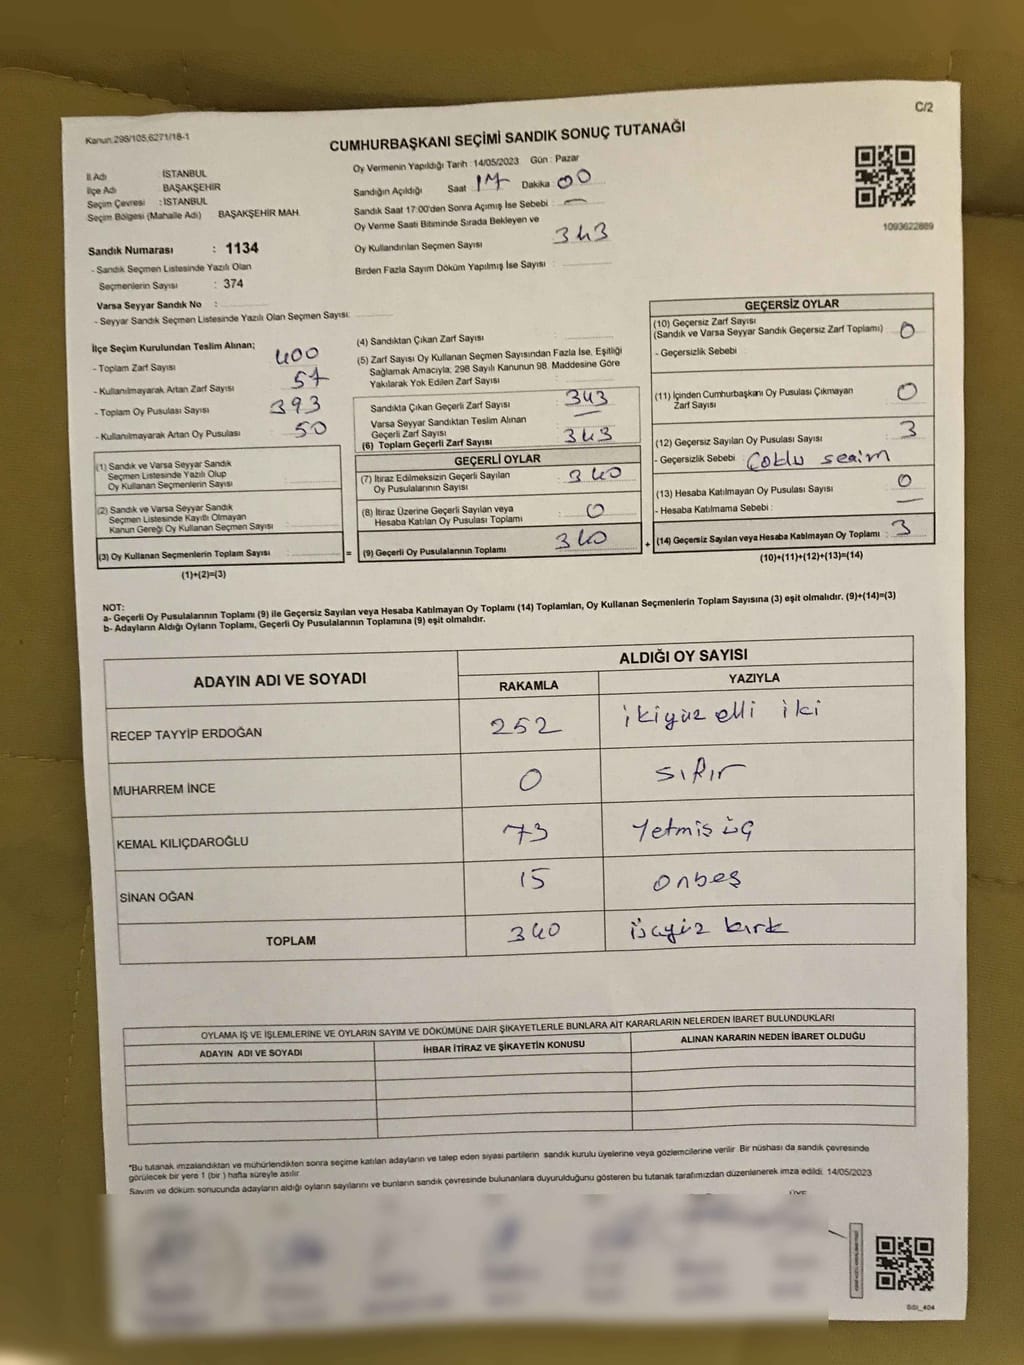 C/2
Kanun:298/105,6271/18-1
CUMHURBAŞKANI SEÇİMİ SANDIK SONUÇ TUTANAĞI
İl Adı : İSTANBUL
İlçe Adı BAŞAKŞEHİR
Seçim Çevresi : İSTANBUL
Seçim Bölgesi (Mahalle Adı) BAŞAKŞEHİR MAH.
Sandık Numarası : 1134
- Sandık Seçmen Listesinde Yazılı Olan
Seçmenlerin Sayısı : 374
Varsa Seyyar Sandık No :
- Seyyar Sandık Seçmen Listesinde Yazılı Olan Seçmen Sayısı:
Oy Vermenin Yapıldığı Tarih : 14/05/2023 Gün : Pazar
Sandığın Açıldığı Saat 17 Dakika 00
Sandık Saat 17:00'den Sonra Açımış İse Sebebi : —
Oy Verme Saati Bitiminde Sırada Bekleyen ve
Oy Kullandırılan Seçmen Sayısı 343
Birden Fazla Sayım Döküm Yapılmış İse Sayısı :
1093622889
İlçe Seçim Kurulundan Teslim Alınan;
- Toplam Zarf Sayısı 400
- Kullanılmayarak Artan Zarf Sayısı 57
- Toplam Oy Pusulası Sayısı 393
- Kullanılmayarak Artan Oy Pusulası 50
(1) Sandık ve Varsa Seyyar Sandık
Seçmen Listesinde Yazılı Olup
Oy Kullanan Seçmenlerin Sayısı :
(2) Sandık ve Varsa Seyyar Sandık
Seçmen Listesinde Kayıtlı Olmayan
Kanun Gereği Oy Kullanan Seçmen Sayısı :
(3) Oy Kullanan Seçmenlerin Toplam Sayısı : =
(1)+(2)=(3)
(4) Sandıktan Çıkan Zarf Sayısı :
(5) Zarf Sayısı Oy Kullanan Seçmen Sayısından Fazla İse, Eşitliği
Sağlamak Amacıyla; 298 Sayılı Kanunun 98. Maddesine Göre
Yakılarak Yok Edilen Zarf Sayısı :
Sandıkta Çıkan Geçerli Zarf Sayısı : 343
Varsa Seyyar Sandıktan Teslim Alınan
Geçerli Zarf Sayısı : —
(6) Toplam Geçerli Zarf Sayısı : 343
GEÇERLİ OYLAR
(7) İtiraz Edilmeksizin Geçerli Sayılan
Oy Pusulalarının Sayısı : 340
(8) İtiraz Üzerine Geçerli Sayılan veya
Hesaba Katılan Oy Pusulası Toplamı : 0
(9) Geçerli Oy Pusulalarının Toplamı : 340 +
GEÇERSİZ OYLAR
(10) Geçersiz Zarf Sayısı
(Sandık ve Varsa Seyyar Sandık Geçersiz Zarf Toplamı) : 0
- Geçersizlik Sebebi
(11) İçinden Cumhurbaşkanı Oy Pusulası Çıkmayan
Zarf Sayısı : 0
(12) Geçersiz Sayılan Oy Pusulası Sayısı : 3
- Geçersizlik Sebebi Çoklu seçim
(13) Hesaba Katılmayan Oy Pusulası Sayısı : 0
- Hesaba Katılmama Sebebi : —
(14) Geçersiz Sayılan veya Hesaba Katılmayan Oy Toplamı : 3
(10)+(11)+(12)+(13)=(14)
NOT:
a- Geçerli Oy Pusulalarının Toplamı (9) ile Geçersiz Sayılan veya Hesaba Katılmayan Oy Toplamı (14) Toplamları, Oy Kullanan Seçmenlerin Toplam Sayısına (3) eşit olmalıdır. (9)+(14)=(3)
b- Adayların Aldığı Oyların Toplamı, Geçerli Oy Pusulalarının Toplamına (9) eşit olmalıdır.
ADAYIN ADI VE SOYADI ALDIĞI OY SAYISI
RAKAMLA YAZIYLA
RECEP TAYYİP ERDOĞAN 252 ikiyüz elli iki
MUHARREM İNCE 0 sıfır
KEMAL KILIÇDAROĞLU 73 Yetmiş üç
SİNAN OĞAN 15 onbeş
TOPLAM 340 üçyüz kırk
OYLAMA İŞ VE İŞLEMLERİNE VE OYLARIN SAYIM VE DÖKÜMÜNE DAİR ŞİKAYETLERLE BUNLARA AİT KARARLARIN NELERDEN İBARET BULUNDUKLARI
ADAYIN ADI VE SOYADI İHBAR İTİRAZ VE ŞİKAYETİN KONUSU ALINAN KARARIN NEDEN İBARET OLDUĞU
*Bu tutanak imzalandıktan ve mühürlendikten sonra seçime katılan adayların ve talep eden siyasi partilerin sandık kurulu üyelerine veya gözlemcilerine verilir. Bir nüshası da sandık çevresinde
görülecek bir yere 1 (bir ) hafta süreyle asılır.
Sayım ve döküm sonucunda adayların aldığı oyların sayılarını ve bunların sandık çevresinde bulunanlara duyurulduğunu gösteren bu tutanak tarafımızdan düzenlenerek imza edildi. 14/05/2023
ÜYE
SSI_404